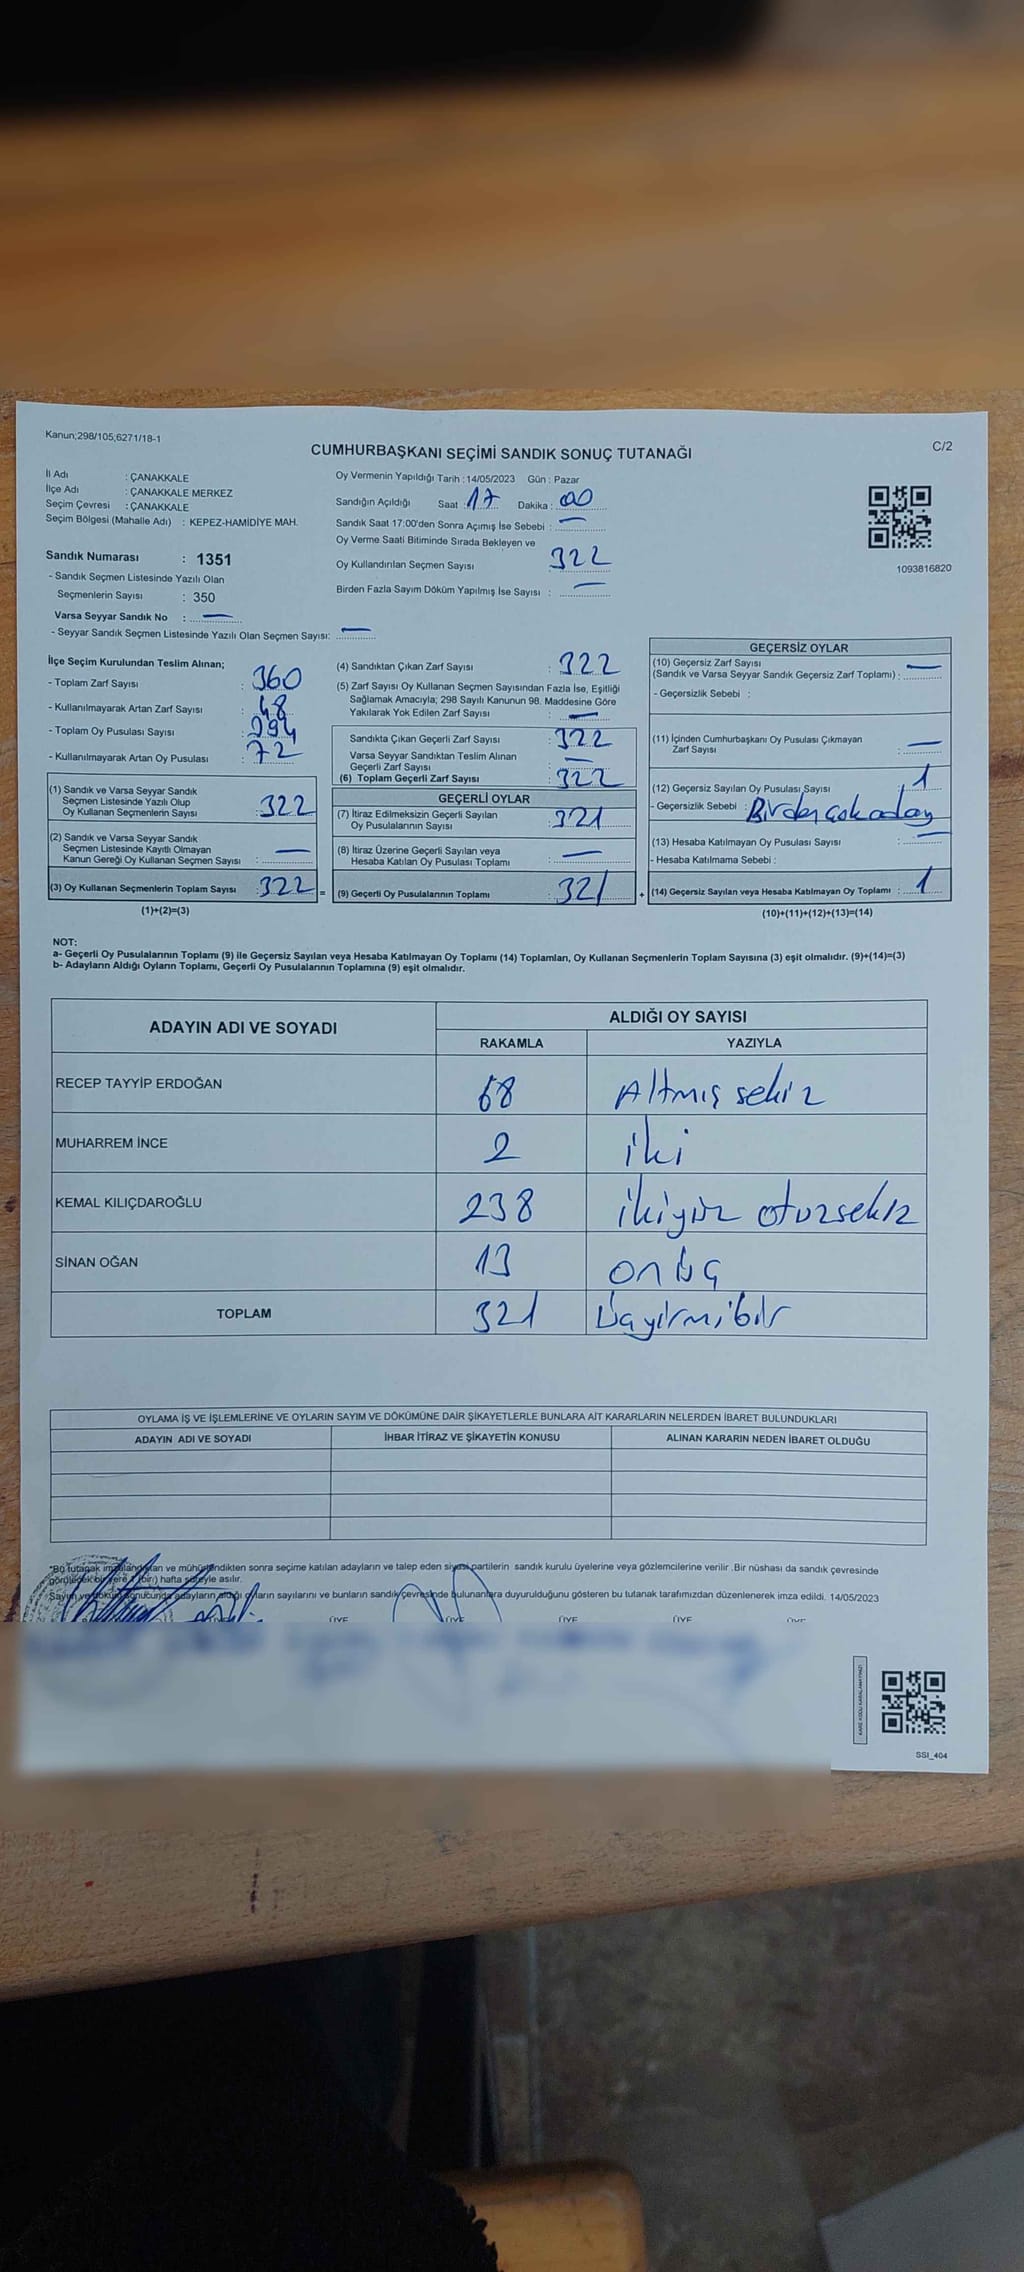 Kanun;298/105;6271/18-1
CUMHURBAŞKANI SEÇİMİ SANDIK SONUÇ TUTANAĞI
C/2
İl Adı : ÇANAKKALE
İlçe Adı : ÇANAKKALE MERKEZ
Seçim Çevresi : ÇANAKKALE
Seçim Bölgesi (Mahalle Adı) : KEPEZ-HAMİDİYE MAH.
Sandık Numarası : 1351
- Sandık Seçmen Listesinde Yazılı Olan
Seçmenlerin Sayısı : 350
Varsa Seyyar Sandık No : —
- Seyyar Sandık Seçmen Listesinde Yazılı Olan Seçmen Sayısı: —
Oy Vermenin Yapıldığı Tarih : 14/05/2023 Gün : Pazar
Sandığın Açıldığı Saat : 17 Dakika : 00
Sandık Saat 17:00'den Sonra Açımış İse Sebebi : —
Oy Verme Saati Bitiminde Sırada Bekleyen ve
Oy Kullandırılan Seçmen Sayısı 322
Birden Fazla Sayım Döküm Yapılmış İse Sayısı : —
1093816820
İlçe Seçim Kurulundan Teslim Alınan;
- Toplam Zarf Sayısı : 360
- Kullanılmayarak Artan Zarf Sayısı : 48
- Toplam Oy Pusulası Sayısı : 394
- Kullanılmayarak Artan Oy Pusulası : 72
(1) Sandık ve Varsa Seyyar Sandık
Seçmen Listesinde Yazılı Olup
Oy Kullanan Seçmenlerin Sayısı : 322
(2) Sandık ve Varsa Seyyar Sandık
Seçmen Listesinde Kayıtlı Olmayan
Kanun Gereği Oy Kullanan Seçmen Sayısı : —
(3) Oy Kullanan Seçmenlerin Toplam Sayısı : 322 =
(1)+(2)=(3)
(4) Sandıktan Çıkan Zarf Sayısı : 322
(5) Zarf Sayısı Oy Kullanan Seçmen Sayısından Fazla İse, Eşitliği
Sağlamak Amacıyla; 298 Sayılı Kanunun 98. Maddesine Göre
Yakılarak Yok Edilen Zarf Sayısı : —
Sandıkta Çıkan Geçerli Zarf Sayısı : 322
Varsa Seyyar Sandıktan Teslim Alınan
Geçerli Zarf Sayısı : —
(6) Toplam Geçerli Zarf Sayısı : 322
GEÇERLİ OYLAR
(7) İtiraz Edilmeksizin Geçerli Sayılan
Oy Pusulalarının Sayısı : 321
(8) İtiraz Üzerine Geçerli Sayılan veya
Hesaba Katılan Oy Pusulası Toplamı : —
(9) Geçerli Oy Pusulalarının Toplamı : 321 +
GEÇERSİZ OYLAR
(10) Geçersiz Zarf Sayısı
(Sandık ve Varsa Seyyar Sandık Geçersiz Zarf Toplamı) : —
- Geçersizlik Sebebi :
(11) İçinden Cumhurbaşkanı Oy Pusulası Çıkmayan
Zarf Sayısı : —
(12) Geçersiz Sayılan Oy Pusulası Sayısı : 1
- Geçersizlik Sebebi : Birden çok aday
(13) Hesaba Katılmayan Oy Pusulası Sayısı : —
- Hesaba Katılmama Sebebi :
(14) Geçersiz Sayılan veya Hesaba Katılmayan Oy Toplamı : 1
(10)+(11)+(12)+(13)=(14)
NOT:
a- Geçerli Oy Pusulalarının Toplamı (9) ile Geçersiz Sayılan veya Hesaba Katılmayan Oy Toplamı (14) Toplamları, Oy Kullanan Seçmenlerin Toplam Sayısına (3) eşit olmalıdır. (9)+(14)=(3)
b- Adayların Aldığı Oyların Toplamı, Geçerli Oy Pusulalarının Toplamına (9) eşit olmalıdır.
ADAYIN ADI VE SOYADI
ALDIĞI OY SAYISI
RAKAMLA YAZIYLA
RECEP TAYYİP ERDOĞAN 68 Altmış sekiz
MUHARREM İNCE 2 iki
KEMAL KILIÇDAROĞLU 238 ikiyüz otuzsekiz
SİNAN OĞAN 13 onüç
TOPLAM 321 üçyirmibir
OYLAMA İŞ VE İŞLEMLERİNE VE OYLARIN SAYIM VE DÖKÜMÜNE DAİR ŞİKAYETLERLE BUNLARA AİT KARARLARIN NELERDEN İBARET BULUNDUKLARI
ADAYIN ADI VE SOYADI İHBAR İTİRAZ VE ŞİKAYETİN KONUSU ALINAN KARARIN NEDEN İBARET OLDUĞU
*Bu tutanak imzalandıktan ve mühürlendikten sonra seçime katılan adayların ve talep eden siyasi partilerin sandık kurulu üyelerine veya gözlemcilerine verilir .Bir nüshası da sandık çevresinde
görülecek bir yere 1 (bir) hafta süreyle asılır.
Sayım ve döküm sonucunda adayların aldığı oyların sayılarını ve bunların sandık çevresinde bulunanlara duyurulduğunu gösteren bu tutanak tarafımızdan düzenlenerek imza edildi. 14/05/2023
ÜYE ÜYE ÜYE ÜYE ÜYE
SSI_404